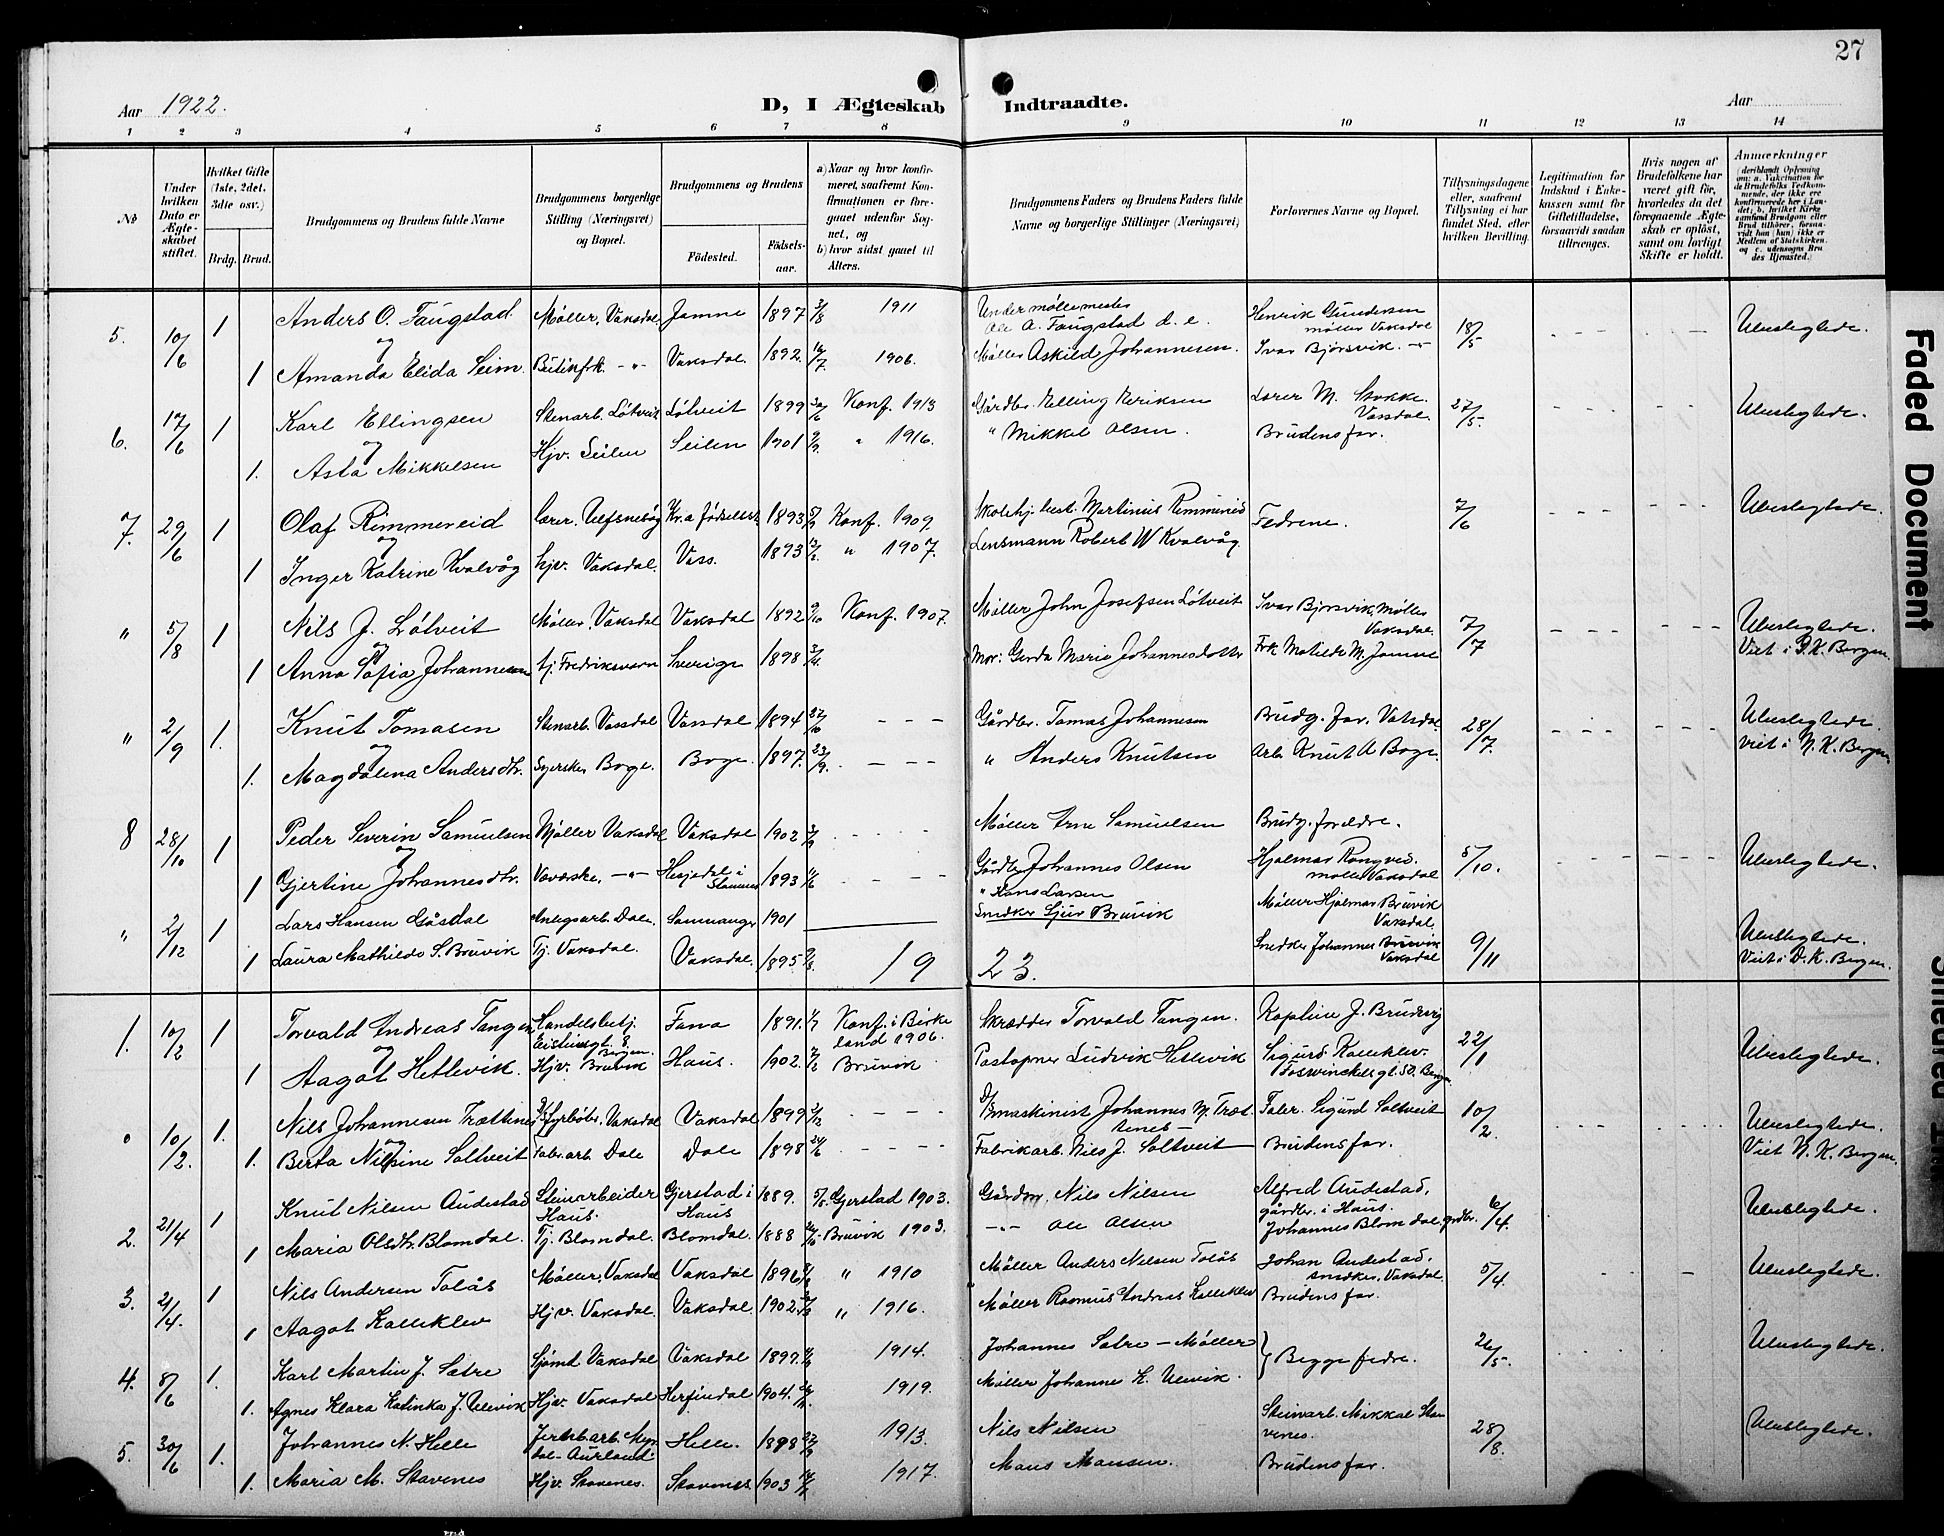 27
Aar 1922.
D, I Ægteskab Indtraadte.
Aar
1 2 3 4 5 6 7 8 9 10 11 12 13 14
No
Under hvilken Dato er Ægteskabet stiftet.
Hvilket Gifte (1ste, 2det, 3dte osv.)
Brdg. Brud.
Brudgommens og Brudens fulde Navne
Brudgommens borgerlige Stilling (Næringsvei) og Bopæl.
Brudgommens og Brudens
Fødested. Fødsels-aar.
a) Naar og hvor konfirmeret, saafremt Konfirmationen er foregaaet udenfor Sognet, og b) hvor sidst gaaet til Alters.
Brudgommens Faders og Brudens Faders fulde Navne og borgerlige Stillinger (Næringsvei)
Forlovernes Navne og Bopæl.
Tillysningsdagene eller, saafremt Tillysning ei har fundet Sted, efter hvilken Bevilling.
Legitimation for Indskud i Enkekassen samt for Giftetilladelse, forsaavidt saadan tiltrænges.
Hvis nogen af Brudefolkene har været gift før, hvorledes da det foregaaende Ægteskab er opløst, samt om lovligt Skifte er holdt.
Anmærkninger
5. 10/6 1 Anders O. Faugstad Møller, Vaksdal Jamne 1897 3/8 1911 Undermøllemester Ole A. Faugstad d. e. Henrik Gundersen møller Vaksdal 18/5 Ubeslegtede.
og
1 Amanda Elida Seim. Butikfrk. -"- Vaksdal. 1892. 1906. Møller Askild Johannesen. Ivar Bjørsvik. -"-
6. 17/6 1 Karl Ellingsen Stenarb. Løtveit Løtveit 1899 30/6 Konf. 1913 Gårdbr. Elling Eriksen Lærer M. Stokke. Vaksdal. 27/5. Ubeslegtede.
og
1. Asta Mikkelsen Hjv. Seilen Seilen 1901 " 1916. " Mikkel Olsen. Brudens far.
7. 29/6 1 Olaf Rimmereid Lærer. 1893 Konf. 1909. Martinus Rimmereid Fedrene. 7/6 Ubeslegtede.
og
1 Inger Katrine Kvalvåg hjv. Vaksdal. Voss. 1893 " 1907. Lensmann Robert W Kvalvåg.
" 5/8 1 Nils J. Løtveit Møller. Vaksdal Vaksdal 1892 9/10 Konf. 1907. Møller John Josefsen Løtveit Ivar Bjørsvik, møller Vaksdal. 7/7 Ubeslegtede.
og
1 Anna Sofia Johannesen tj. Fredriksvern Sverige 1898 Mor: Gerda Maria Johannesdotter Frk Matilde M. Jamne Viet i D. K. Bergen.
" 2/9 1. Knut Tomasen Stenarb. Vaksdal Vaksdal 1894 Gårdbr. Tomas Johannesen Brudg. far, Vaksdal 28/7. Ubeslegtede.
og
1. Magdalena Andersdtr. Syerske, Boge. Boge. 1897. 23/9. " Anders Knutsen Arb. Knut A Boge. viet i N. K. Bergen
8 28/10 1 Peder Severin Samuelsen Møller Vaksdal Vaksdal 1902 Møller Arne Samuelsen Brudg. forældre.
og
1 Gjertine Johannesdtr. Væverske. -"- Hesjedal i Stamnes 1893 Gårdbr. Johannes Olsen Hjalmar Rongved. møller Vaksdal 5/10. Ubeslegtede.
" 2/12 1 Lars Hansen Gåsdal Anlegsarb. Dale, Samnanger 1901 " Hans Larsen Møller Hjalmar Bruvik Vaksdal.
1 Laura Mathilde S. Bruvik Tj. Vaksdal. Vaksdal. 1895 Snedker Sjur Bruvik Snedker Johannes Bruvik Vaksdal 9/11 Ubeslegtede. Viet i D. K. Bergen.
19 23.
1. 10/2 1 Torvald Andreas Tangen Handelsbetj. Bergen. Fana 1891. 1/7 Konf. i Birkeland 1906. Skrædder Torvald Tangen. Kaptein J. Brudvig 22/1 Ubeslegtede.
og
1 Aagot Hetlevik. Hjv. Bruvik Haus. 1902. Bruvik Postopner Ludvik Hetlevik Sigurd Kalleklev. Foswinckelsgt. 50. Bergen
" 10/2. 1. Nils Johannesen Trættenes Fyrbøter. Vaksdal Vaksdal 1899 maskinist Johannes N. Trættenes Sigurd Soltveit 10/2. Ubeslegtede.
og
1. Berta Nilsine Soltveit Fabr.arb. Dale Dale 1898 Fabrikarb. Nils J. Soltveit Brudens far. Viet N. K. Bergen.
2. 21/4 1 Knut Nilsen Audestad Steinarbeider Haus. Gjerstad i Haus 1889. 5/5. Gjerstad 1903. Gårdm. Nils Nilsen Alfred Audestad, gårdbr. i Haus. 6/4 Ubeslegtede.
1 Maria Olsdtr. Blomdal. Tj. Blomdal. Blomdal. 1888 Bruvik 1903. -"- Ole Olsen Johannes Blomdal, grdbr.
3. 21/4. 1 Nils Andersen Tolås Møller, Vaksdal Vaksdal 1896 " 1910 Møller Anders Nilsen Tolås Johan Audestad, snedker, Vaksdal. 5/4. Ubeslegtede.
1 Aagot Kalleklev Hjv. Vaksdal. Vaksdal. 1902. " 1916. Møller Rasmus Andreas Kalleklev Brudens far.
4. 8/6 1. Karl Martin J. Satre Sjømd Vaksdal Vaksdal 1897. 1914. Johannes Satre - Møller } Begge fedre. 26/5. Ubeslegtede.
1. Agnes Klara Katinka J. Ulevik Hjv. Vaksdal Herfindal 1904. 1919. Møller Johannes K. Ulevik.
5. 30/6 1. Johannes N. Helle Jernb.arb. Myrdal - Aurland Helle. 1898 1913. Nils Nilsen Steinarb. Mikkal Stavenes. 28/8. Ubeslegtede.
1. Maria M. Stavenes Hjv. Stavenes. Stavenes 1903 1917. Mons Monsen. Brudens far.
Faded Document